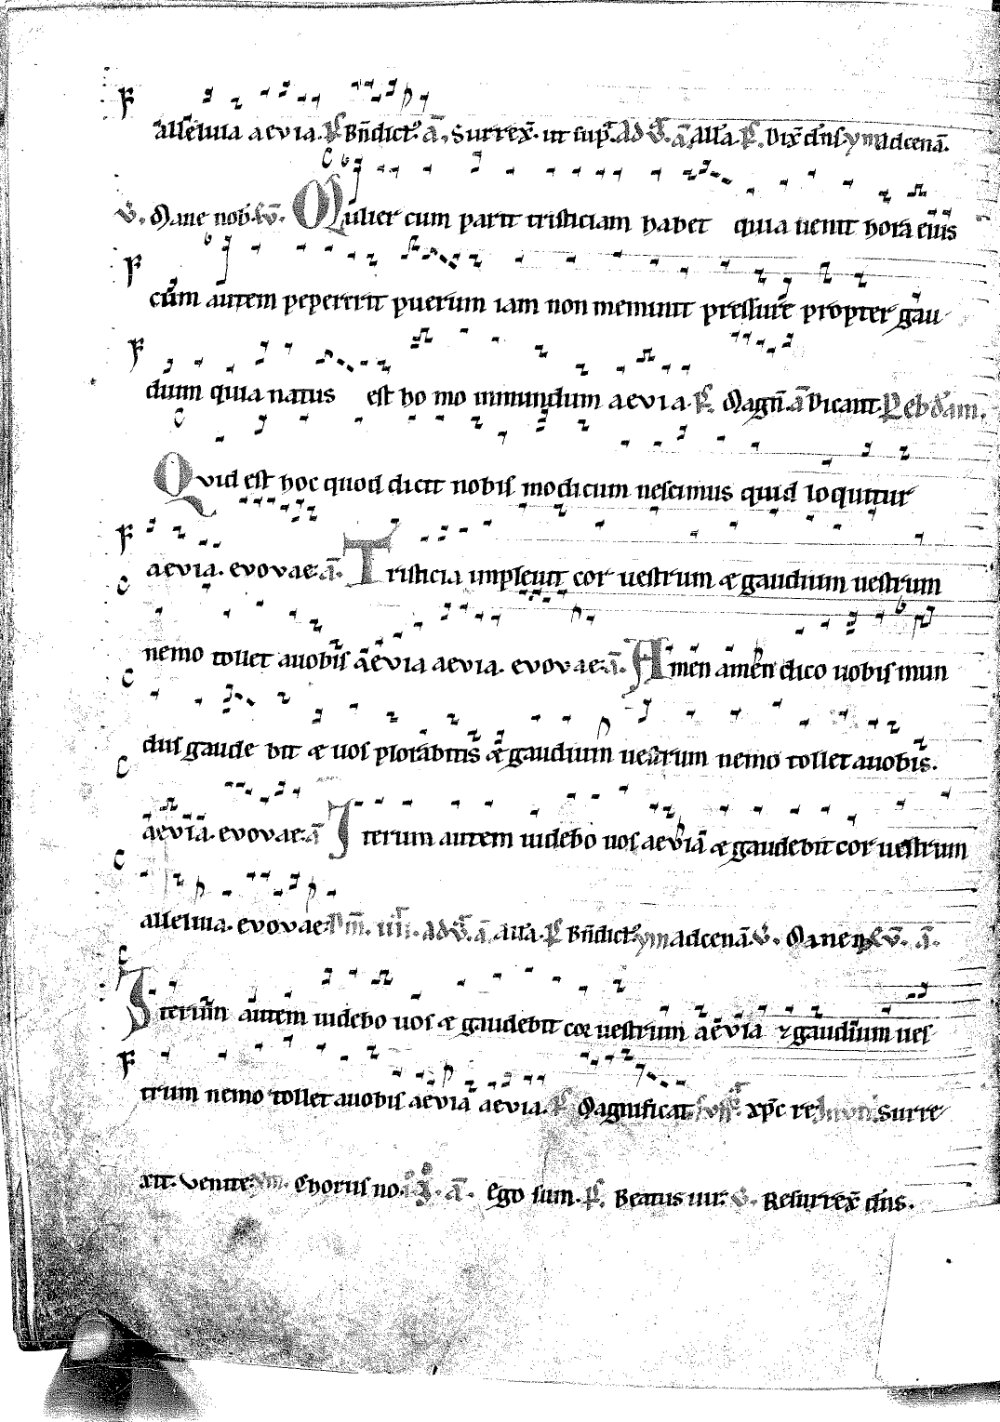 alleluia aevia. Bn̄dict᷒ a̅. Surrex̅. ut sup̅. ad a̅. all̅a. Dix̅ dn̄s. ym adcenā.
v̅. Mane nob̅. ev̅. Mulier cum parit tristiciam habet quia uenit hora eius
cum autem pepererit puerum iam non meminit pressure propter gau
dium quia natus est ho mo inmundum aevia. p̅s. Magn̅. a̅ Dicant. Reb d̅am.
Quid est hoc quod dicit nobis modicum nescimus quid loquitur
aevia. evovae. a̅. Tristicia impleuit cor uestrum æ gaudium uestrum
nemo tollet auobis aevia aevia. evovae. a̅. Amen amen dico uobis mun
dus gaude bit æ uos plorabitis æ gaudium uestrum nemo tollet auobis.
aevia. evovae. a̅ Iterum autem uidebo uos aevia æ gaudebit cor uestrum
alleluia. evovae. a̅ all̅a. Bn̄dict᷒ ym adcenā. v̅. Mane n ev̅. a̅.
Iterum autem uidebo uos æ gaudebit cor uestrum aevia ⁊ gaudium ues
trum nemo tollet auobis aevia aevia. p̅s Magnificat xp̅c re Surre
xit. Venite. ym. Chorus no. a̅. Ego sum. p̅s. Beatus uir. v̅. Resurrex̅ dn̄s.